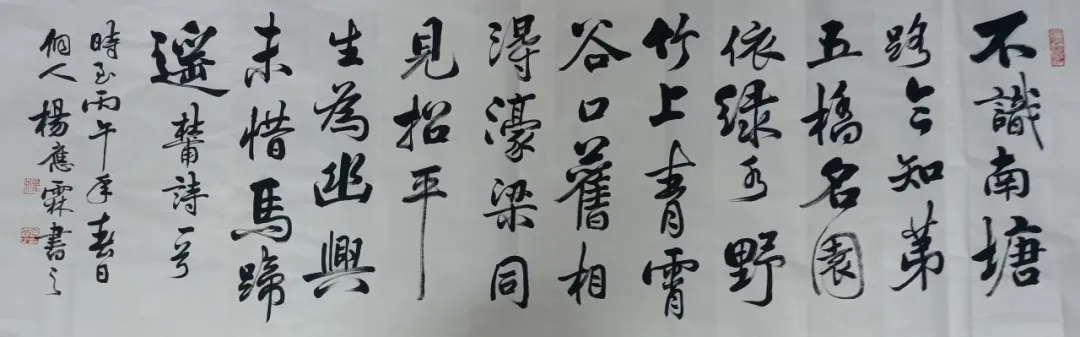 不識南塘
路今知第
五橋名園
依綠水野
竹上青霄
谷口舊相
得濠梁同
見招平
生為幽興
未惜馬蹄
遙 杜甫詩一首
時至丙午年春日
人楊應霖書之